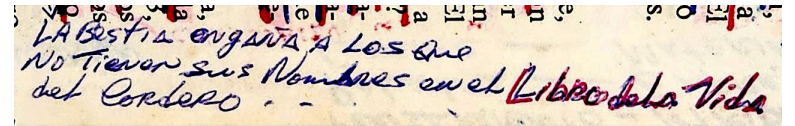 LA Bestia engaña A Los que
No Tienen sus Nombres en el Libro de La Vida
del Cordero . -